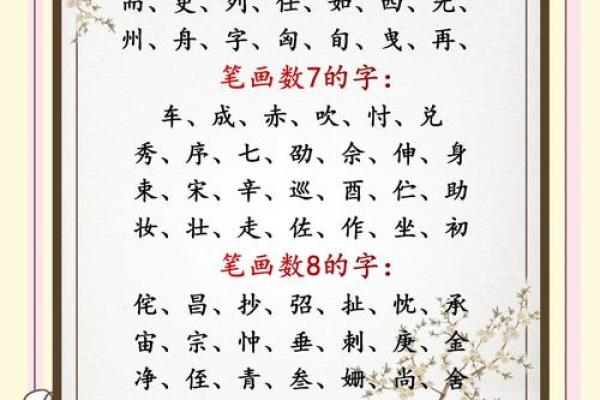 而、吏、列、任、如、西、先、
州、舟、字、匈、旬、曳、再、
笔画数7的字：
车、成、赤、吹、忖、兑
秀、序、七、劭、佘、伸、身
束、宋、辛、巡、酉、伫、助
妆、壮、走、佐、作、坐、初
笔画数8的字：
侘、昌、抄、弨、扯、忱、承
宙、宗、忡、垂、刺、庚、金
净、侄、青、叁、姗、尚、舍